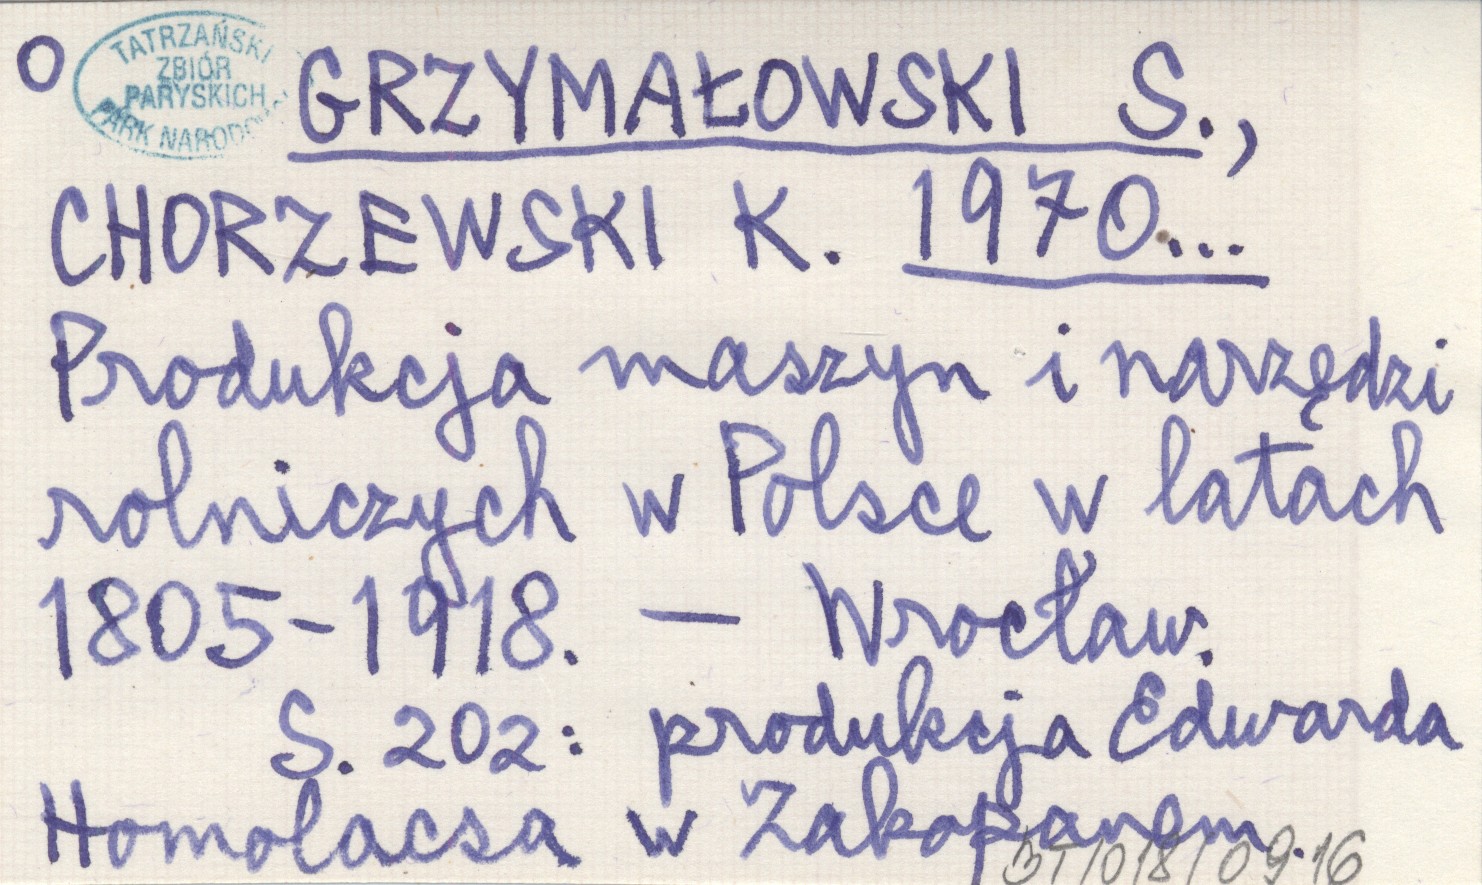 O
TATRZAŃSKI
ZBIÓR
PARYSKICH
PARK NARODOWY
GRZYMAŁOWSKI S.,
CHORZEWSKI K. 1970...
Produkcja maszyn i narzędzi
rolniczych w Polsce w latach
1805-1918. — Wrocław.
S. 202: produkcja Edwarda
Homolacsa w Zakopanem.
BT/018/09.16